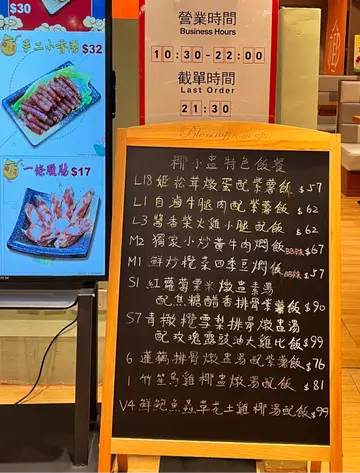 $30
手工小香腸 $32
一條臘腸 $17
營業時間
Business Hours
10:30-22:00
截單時間
Last Order
21:30
椰小盅特色飯餐
L18 姬松茸燉蛋配紫薯飯 $57
L1 自滷牛腿肉配紫薯飯 $62
L3 醬香柴火雞小腿配飯 $62
M2 獨家小炒黃牛肉焗飯 $67
M1 鮮炒欖菜四季豆焗飯 $57
S1 紅蘿蔔粟米燉盅素湯
配焦糖醋香排骨紫薯飯 $90
S7 青橄欖雪梨排骨燉盅湯
配玫瑰露豉油大雞比飯 $99
6 蓮藕排骨燉盅湯配紫薯飯 $76
1 竹笙烏雞椰盅燉湯配飯 $81
V4 鮮鮑魚蟲草花土雞椰湯配飯 $99